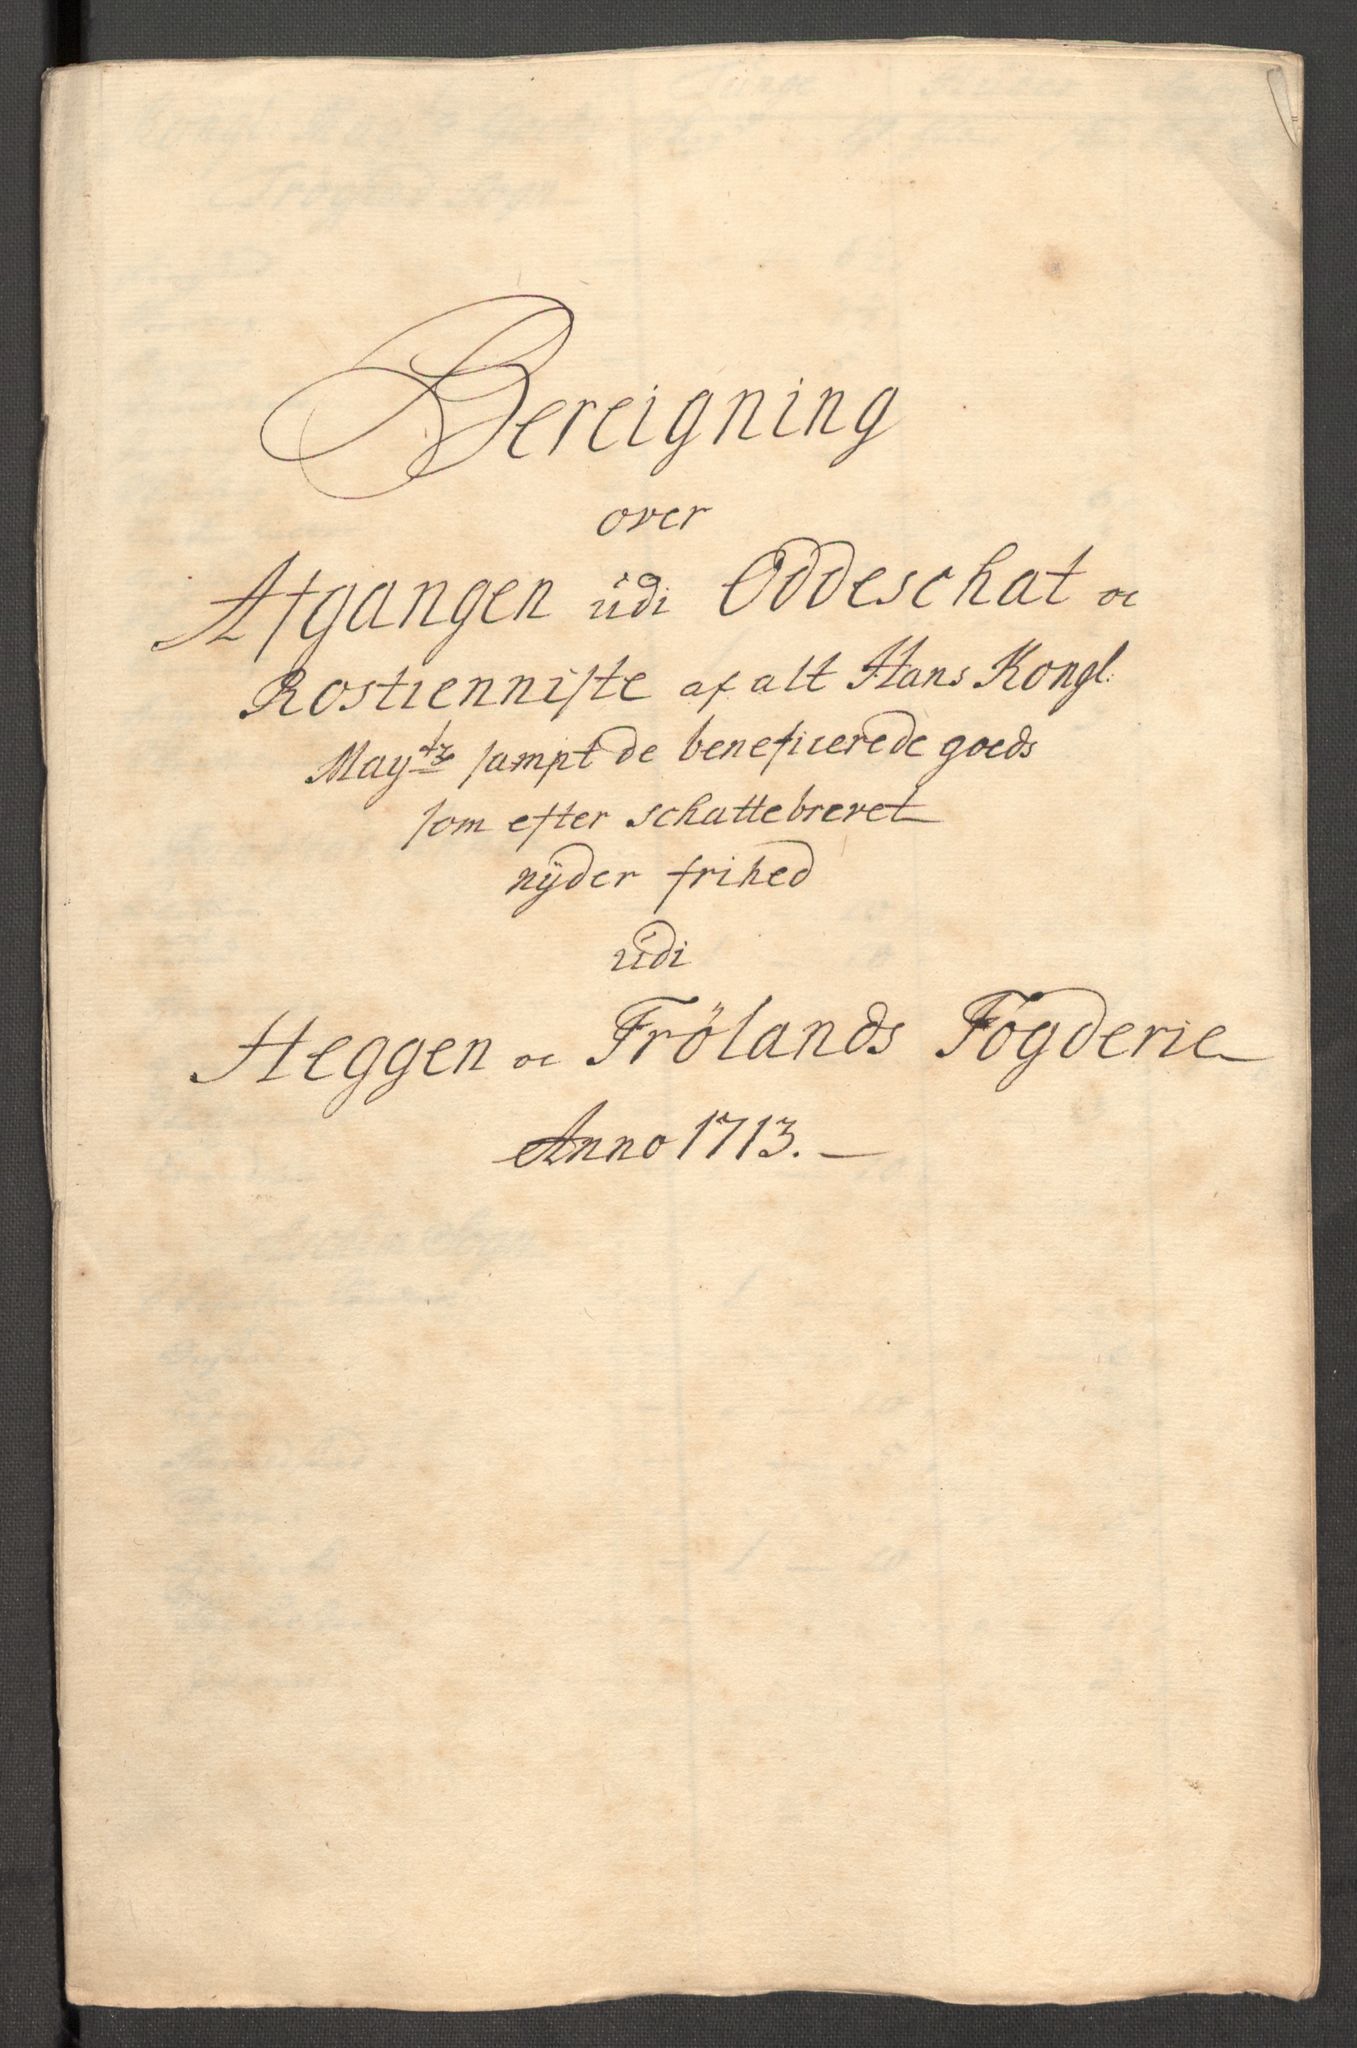 Bereigning
over
Afgangen udi Oddeschat oc
Rostienniste af alt Hans Kongl:
Mayᵗᶻ sampt de beneficerede goeds
som efter schattebrevet
nÿder frihed
udi
Heggen oc Frölands Fogderie
Anno 1713.